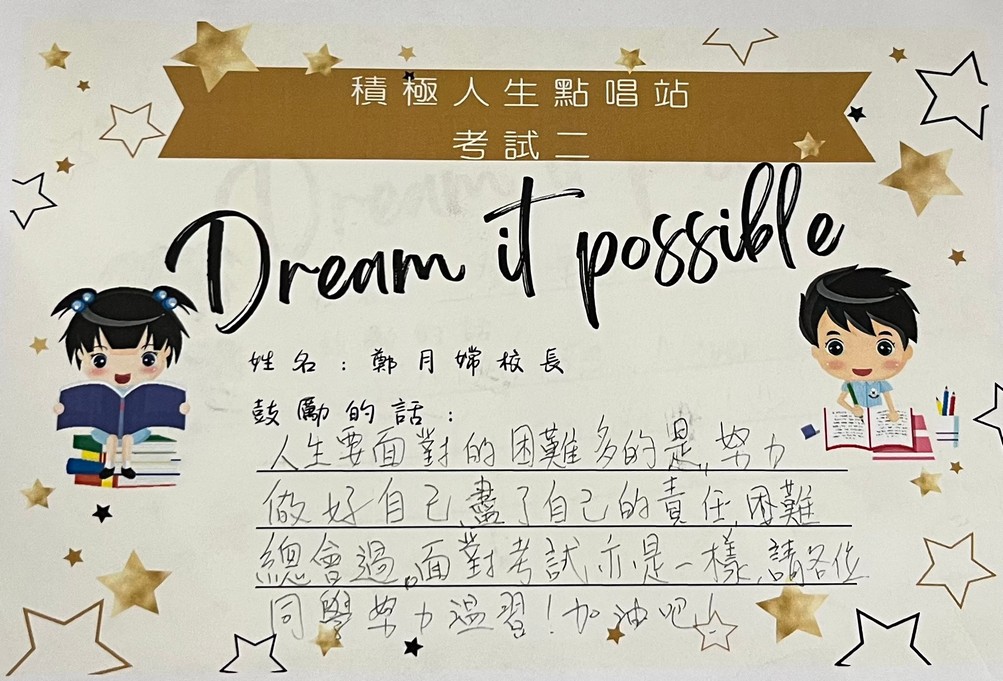 積極人生點唱站
考試二
Dream it possible
姓名：鄭月嫦校長
鼓勵的話：
人生要面對的困難多的是,努力
做好自己,盡了自己的責任,困難
總會過。面對考試亦是一樣,請各位
同學努力溫習!加油吧!